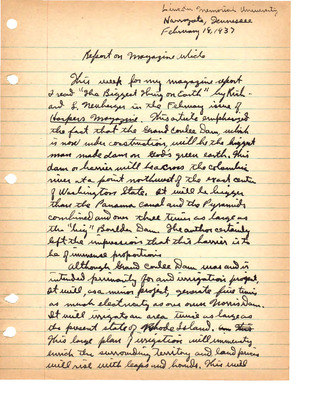 Lincoln Memorial University
Harrogate, Tennessee
February 18, 1937
Report on Magazine Article
This week for my magazine report
I read "The Biggest Thing on Earth" by Rich-
ard L. Neuberger in the February issue of
Harpers Magazine. This article emphasized
the fact that the Grand Coulee Dam, which
is now under construction, will be the biggest
man made dam on God's green earth. This
dam or barrier will be across the Columbia
river at a point northwest of the exact center
of Washington State. It will be bigger
than the Panama Canal and the Pyramids
combined and over three times as large as
the "big" Boulder Dam. The author certainly
left the impression that this barrier is to
be of immense proportions
Although Grand Coulee Dam was and is
intended primarily for and irrigation project,
it will, as a minor project, generate five times
as much electricity as our own Norris Dam.
It will irrigate an area twice as large as
the present state of Rhode Island.
This large plan of irrigation will immensely
enrich the surrounding territory and land prices
will rise with leaps and bounds. This will